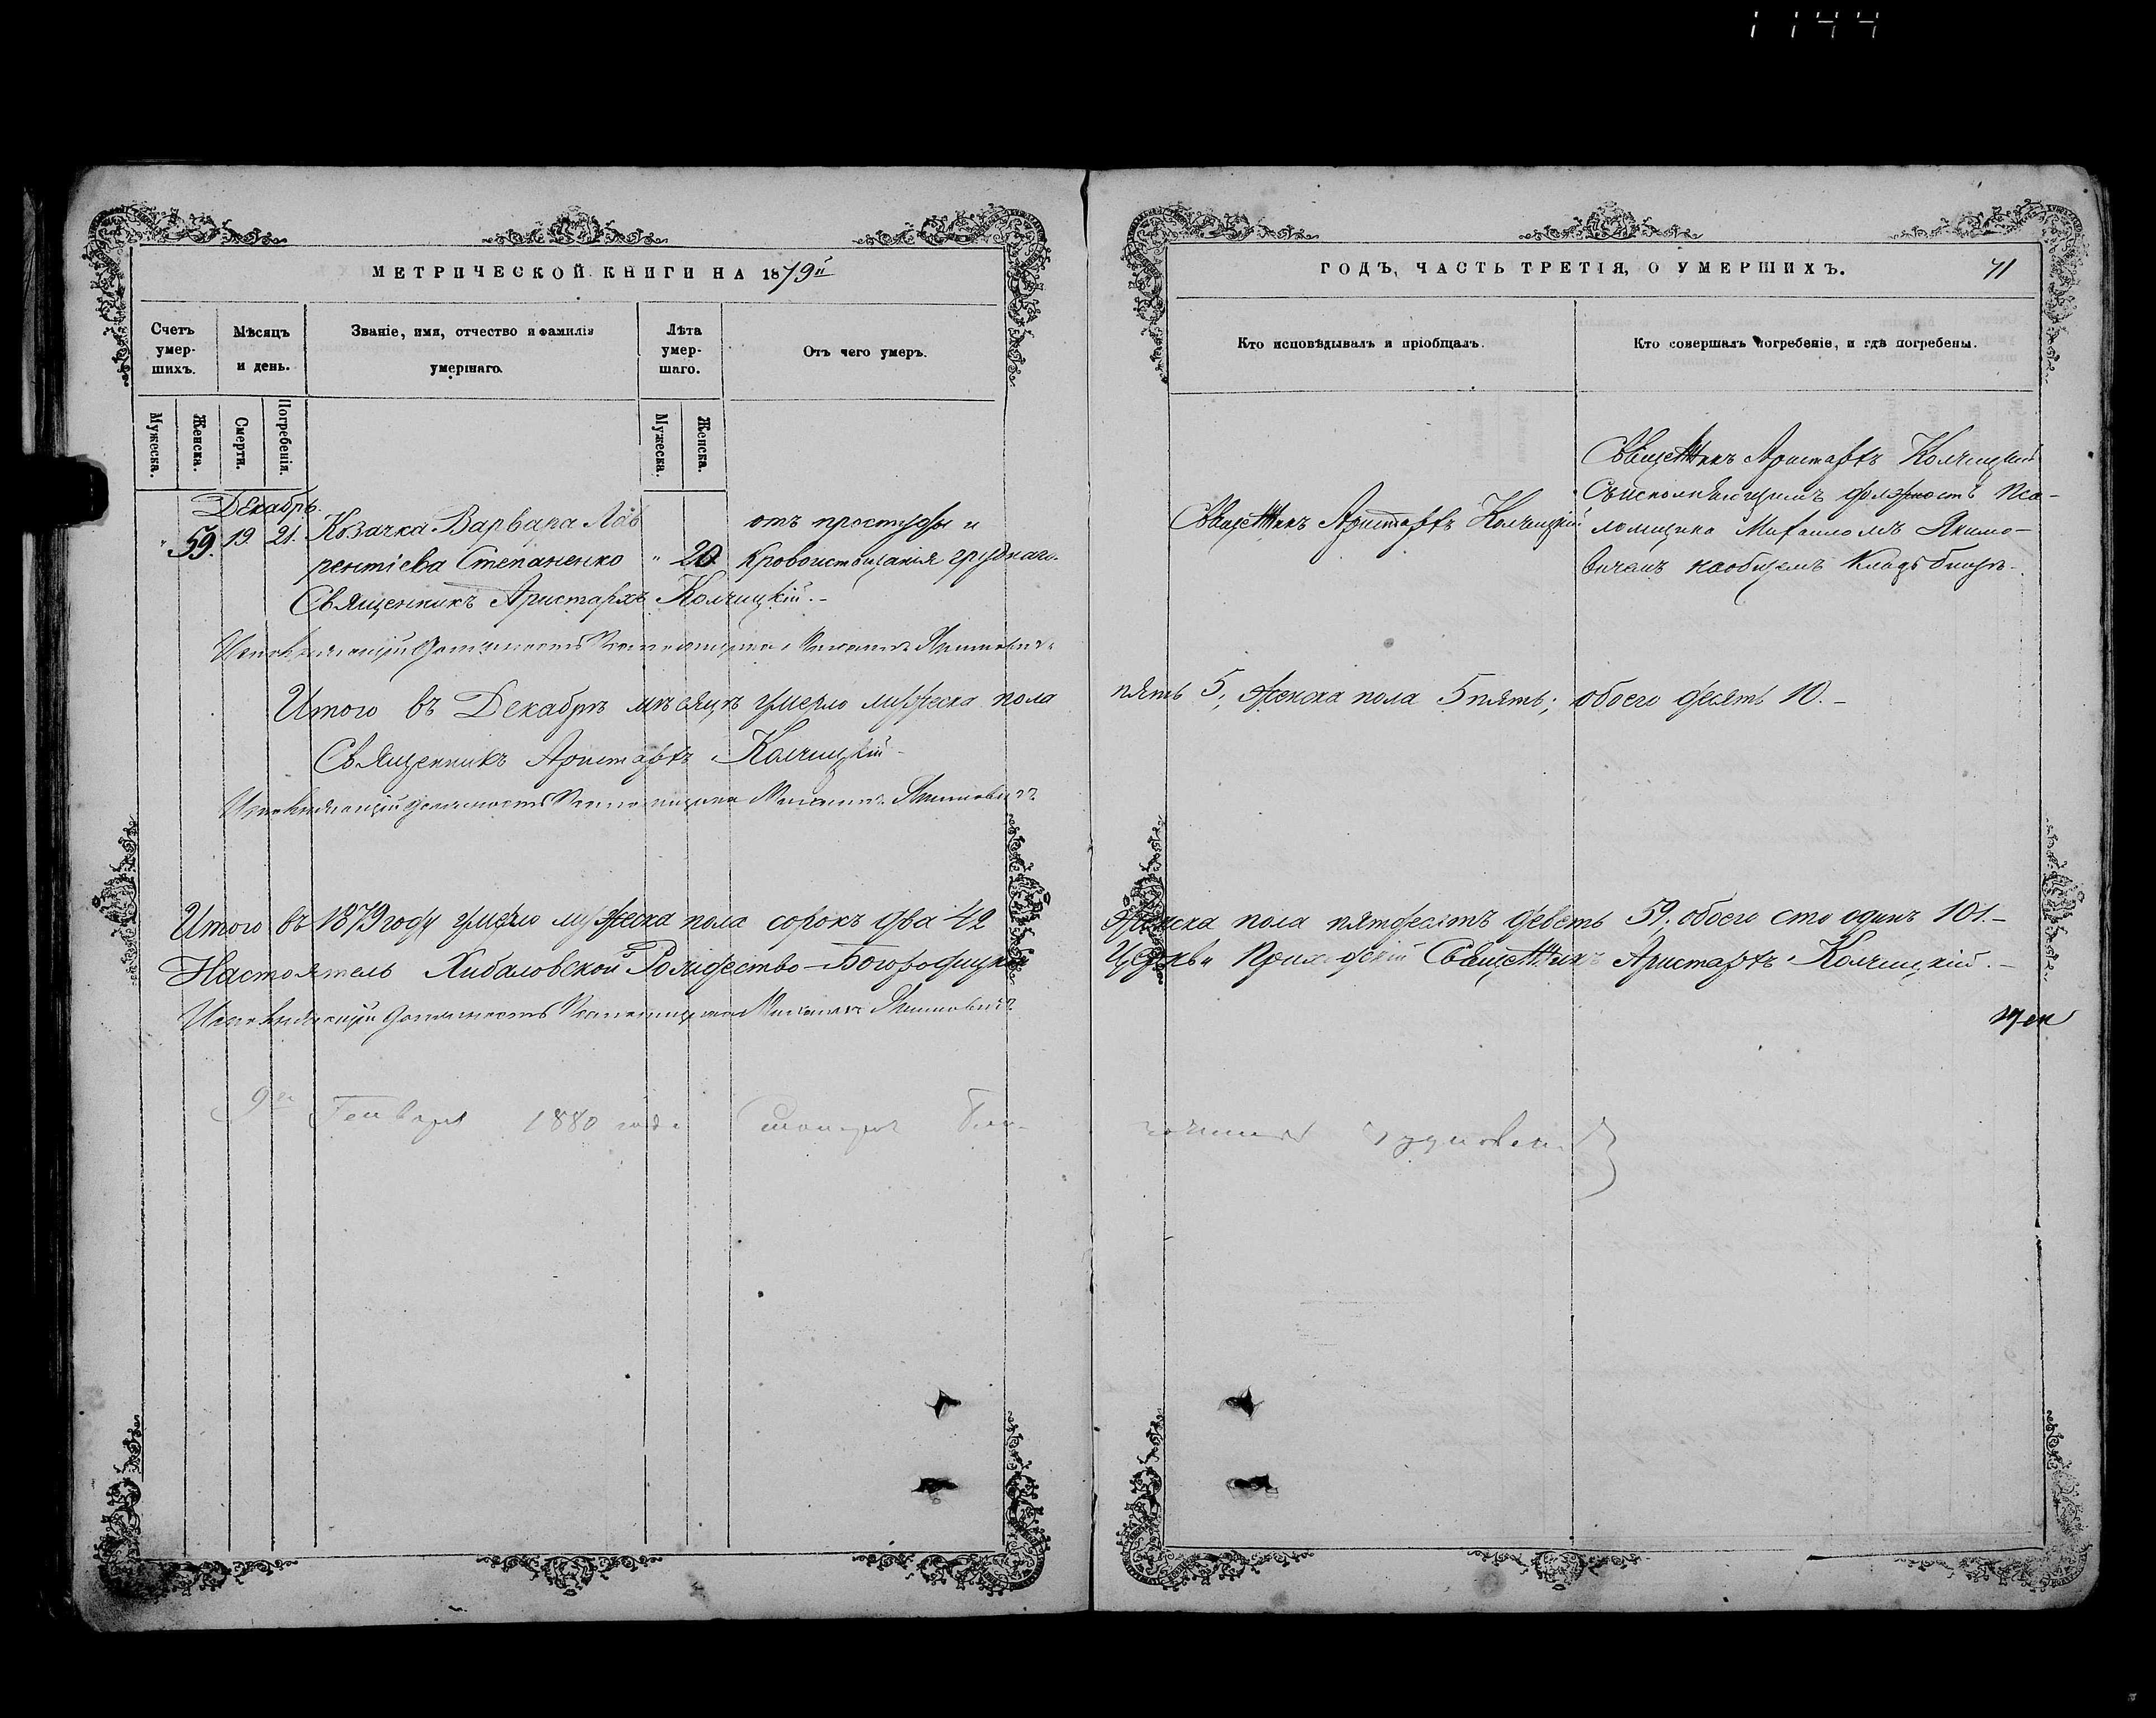 1144
МЕТРИЧЕСКОЙ КНИГИ НА 1879й
Счетъ умер-шихъ.
Мѣсяцъ и день.
Званіе, имя, отчество и фамилія умершаго.
Лѣта умер-шаго.
Отъ чего умеръ.
Мужеска.
Женска.
Смерти.
Погребенія.
Мужеска.
Женска.
Декабрь.
" 59. 19. 21. Козачка Варвара Лав
рентіева Степаненко " 20 отъ простуды и
кровоистощанія груднаго.
Священникъ Аристархъ Колчицкій.-
Исполняющій должность Псаломщика Михаилъ Якимовичъ
Итого въ Декабрѣ мѣсяцѣ умерло мужеска пола
Священникъ Аристархъ Колчицкій-
Исполняющій должность Псаломщика Михаилъ Якимовичъ
Итого въ 1879 году умерло мужеска пола сорокъ два 42
Настоятель Хибаловской Рождество-Богородицкой
Исполняющій должность Псаломщика Михаилъ Якимовичъ
9го Генваря 1880 года
ГОДЪ, ЧАСТЬ ТРЕТІЯ, О УМЕРШИХЪ.
71
Кто исповѣдывалъ и пріобщалъ.
Кто совершалъ погребеніе, и гдѣ погребены.
Священникъ Аристархъ Колчицкій
Священникъ Аристархъ Колчицкій
Съ исполняющимъ должность Пса-
ломщика Михаиломъ Якимо-
вичемъ на общемъ кладбищѣ.
пять 5; женска пола 5 пять; обоего десять 10.-
женска пола пятдесятъ девять 59; обоего сто одинъ 101.-
Церкви Приходскій Священникъ Аристархъ Колчицкій.-